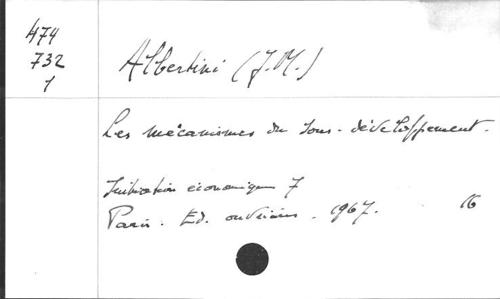 474
732
1
Albertini (J.M.)
Les mécanismes du sous-développement.
Initiation économique 7
Paris. Ed. ouvrières. 1967. 16